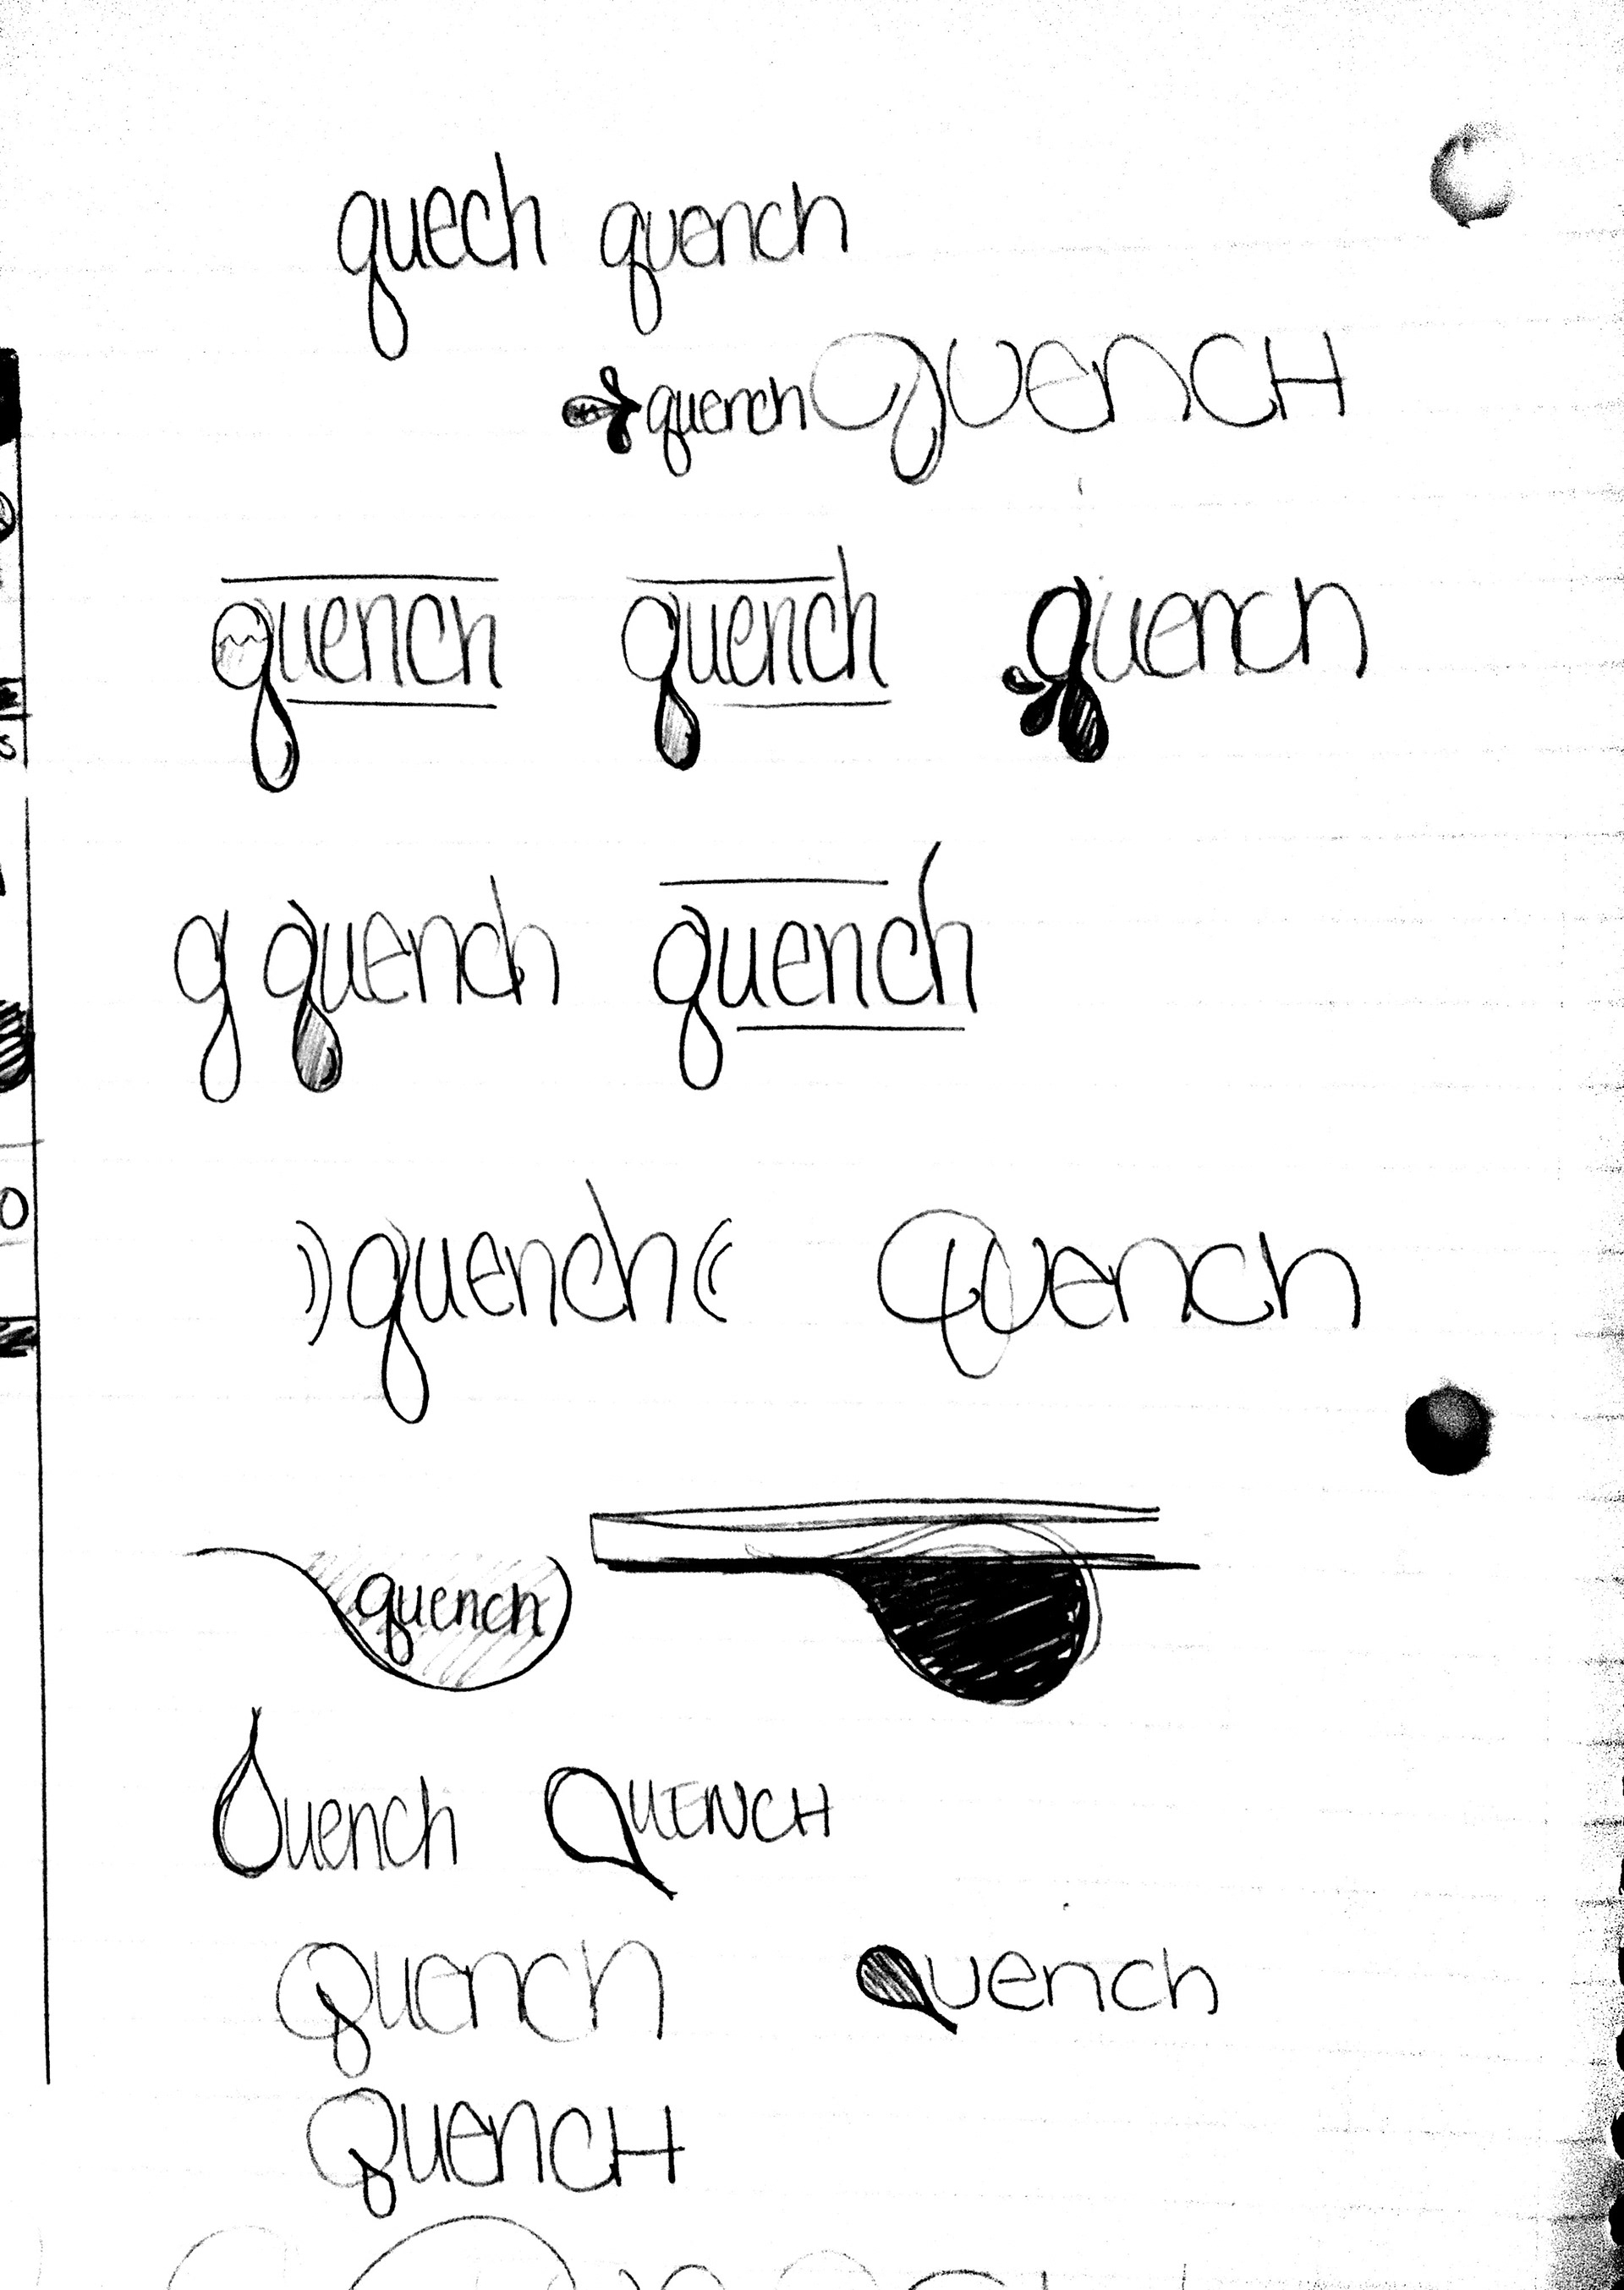 quech quench
quench QuencH
quench quench quench
q quench quench
quench Quench
quench
Quench QUENCH
Quench Quench
QuencH